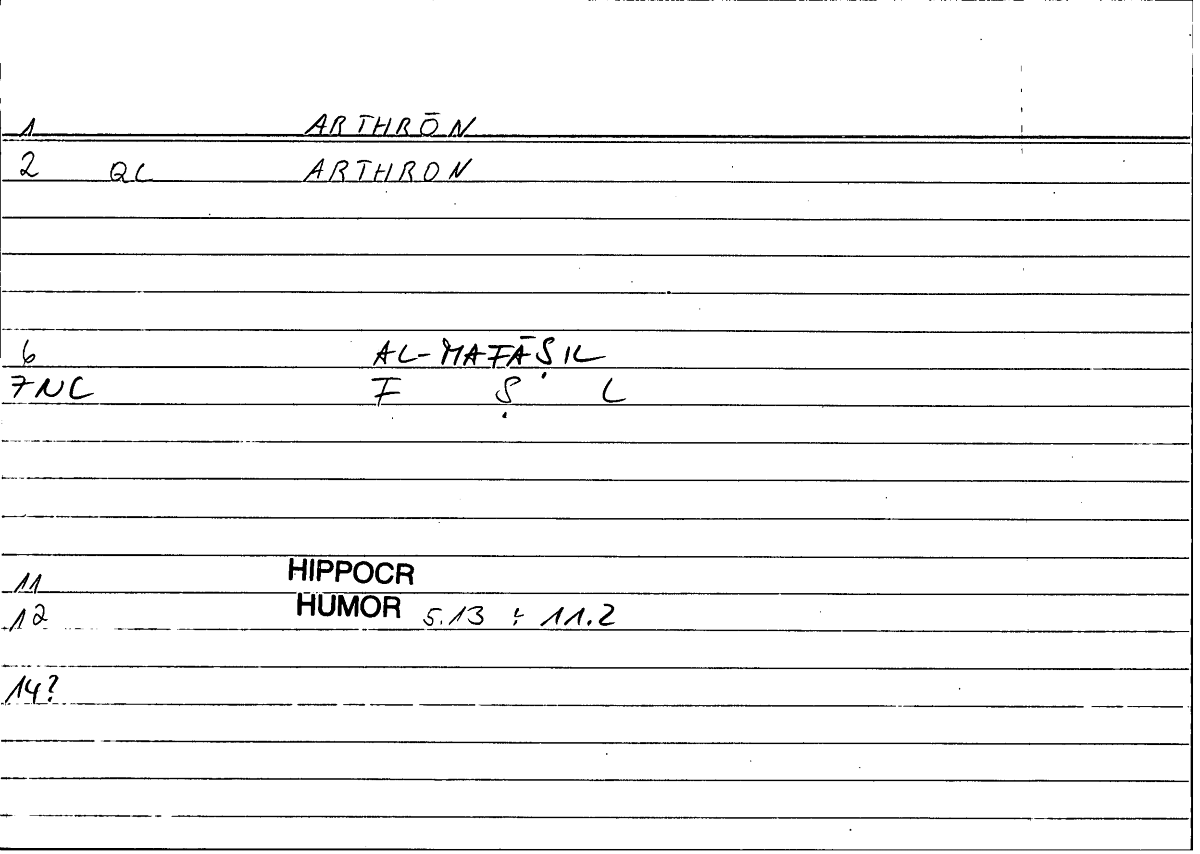 1 ARTHRŌN
2 QL ARTHRON
6 AL-MAFĀṢIL
7NC F Ṣ L
11 HIPPOCR
12 HUMOR 5.13 : 11.2
14?